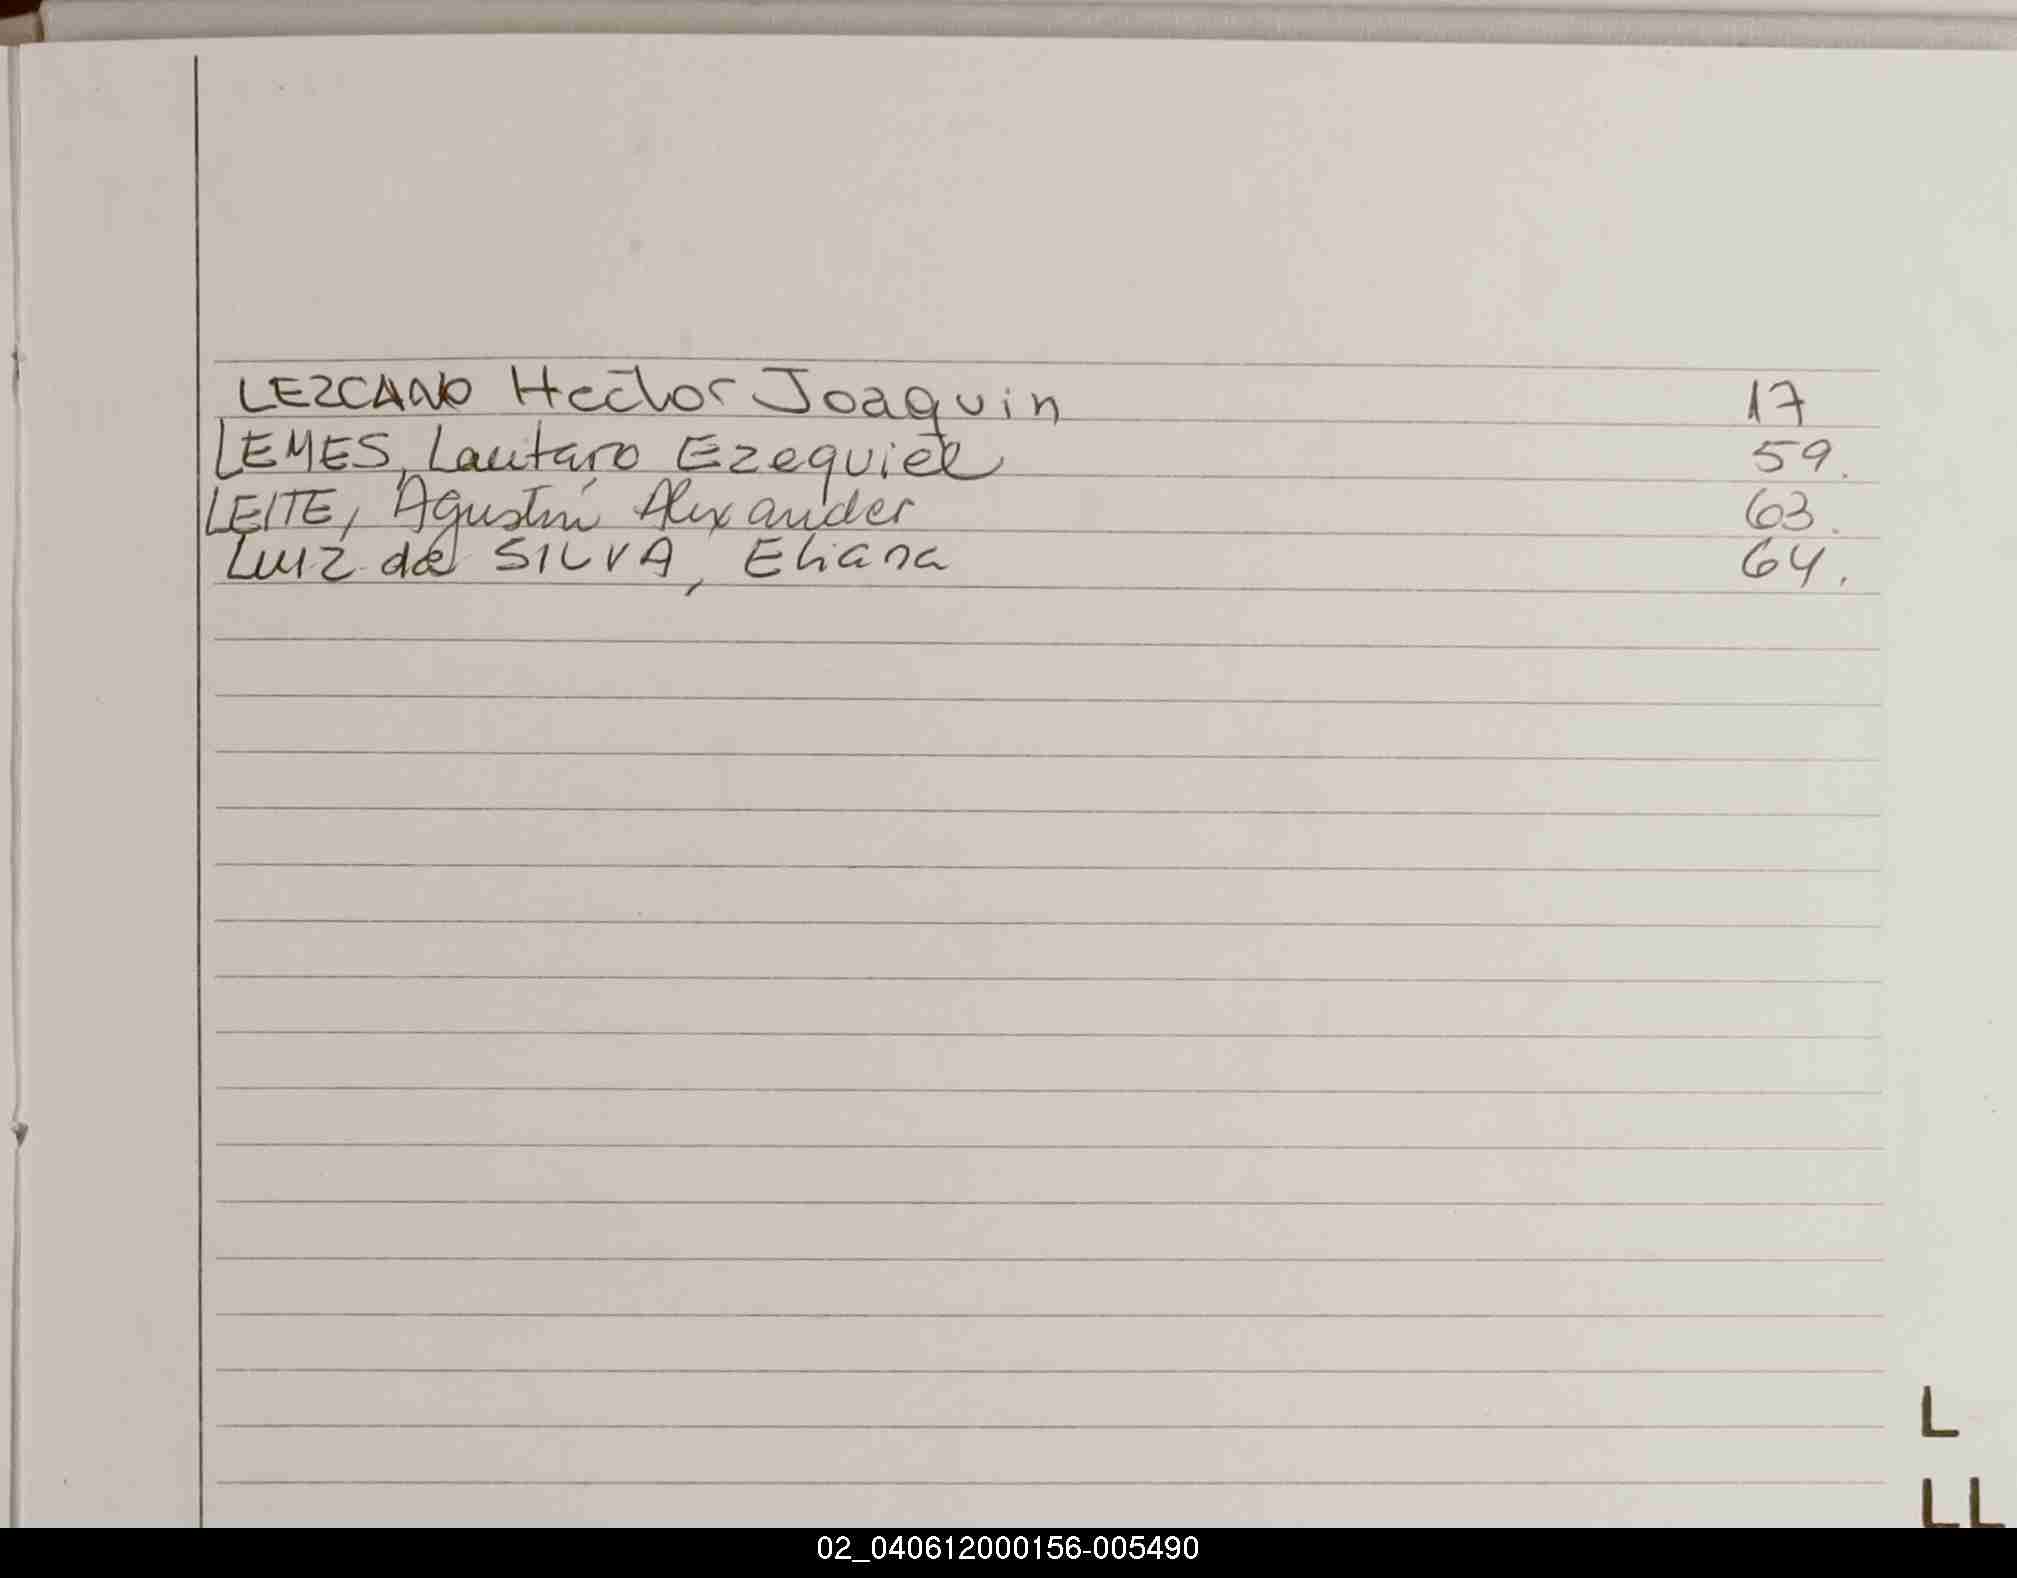 LEZCANO Hector Joaquin 17
LEMES, Lautaro Ezequiel 59.
LEITE, Agustín Alexander 63.
LUIZ de SILVA, Eliana 64.
L
LL
02_040612000156-005490